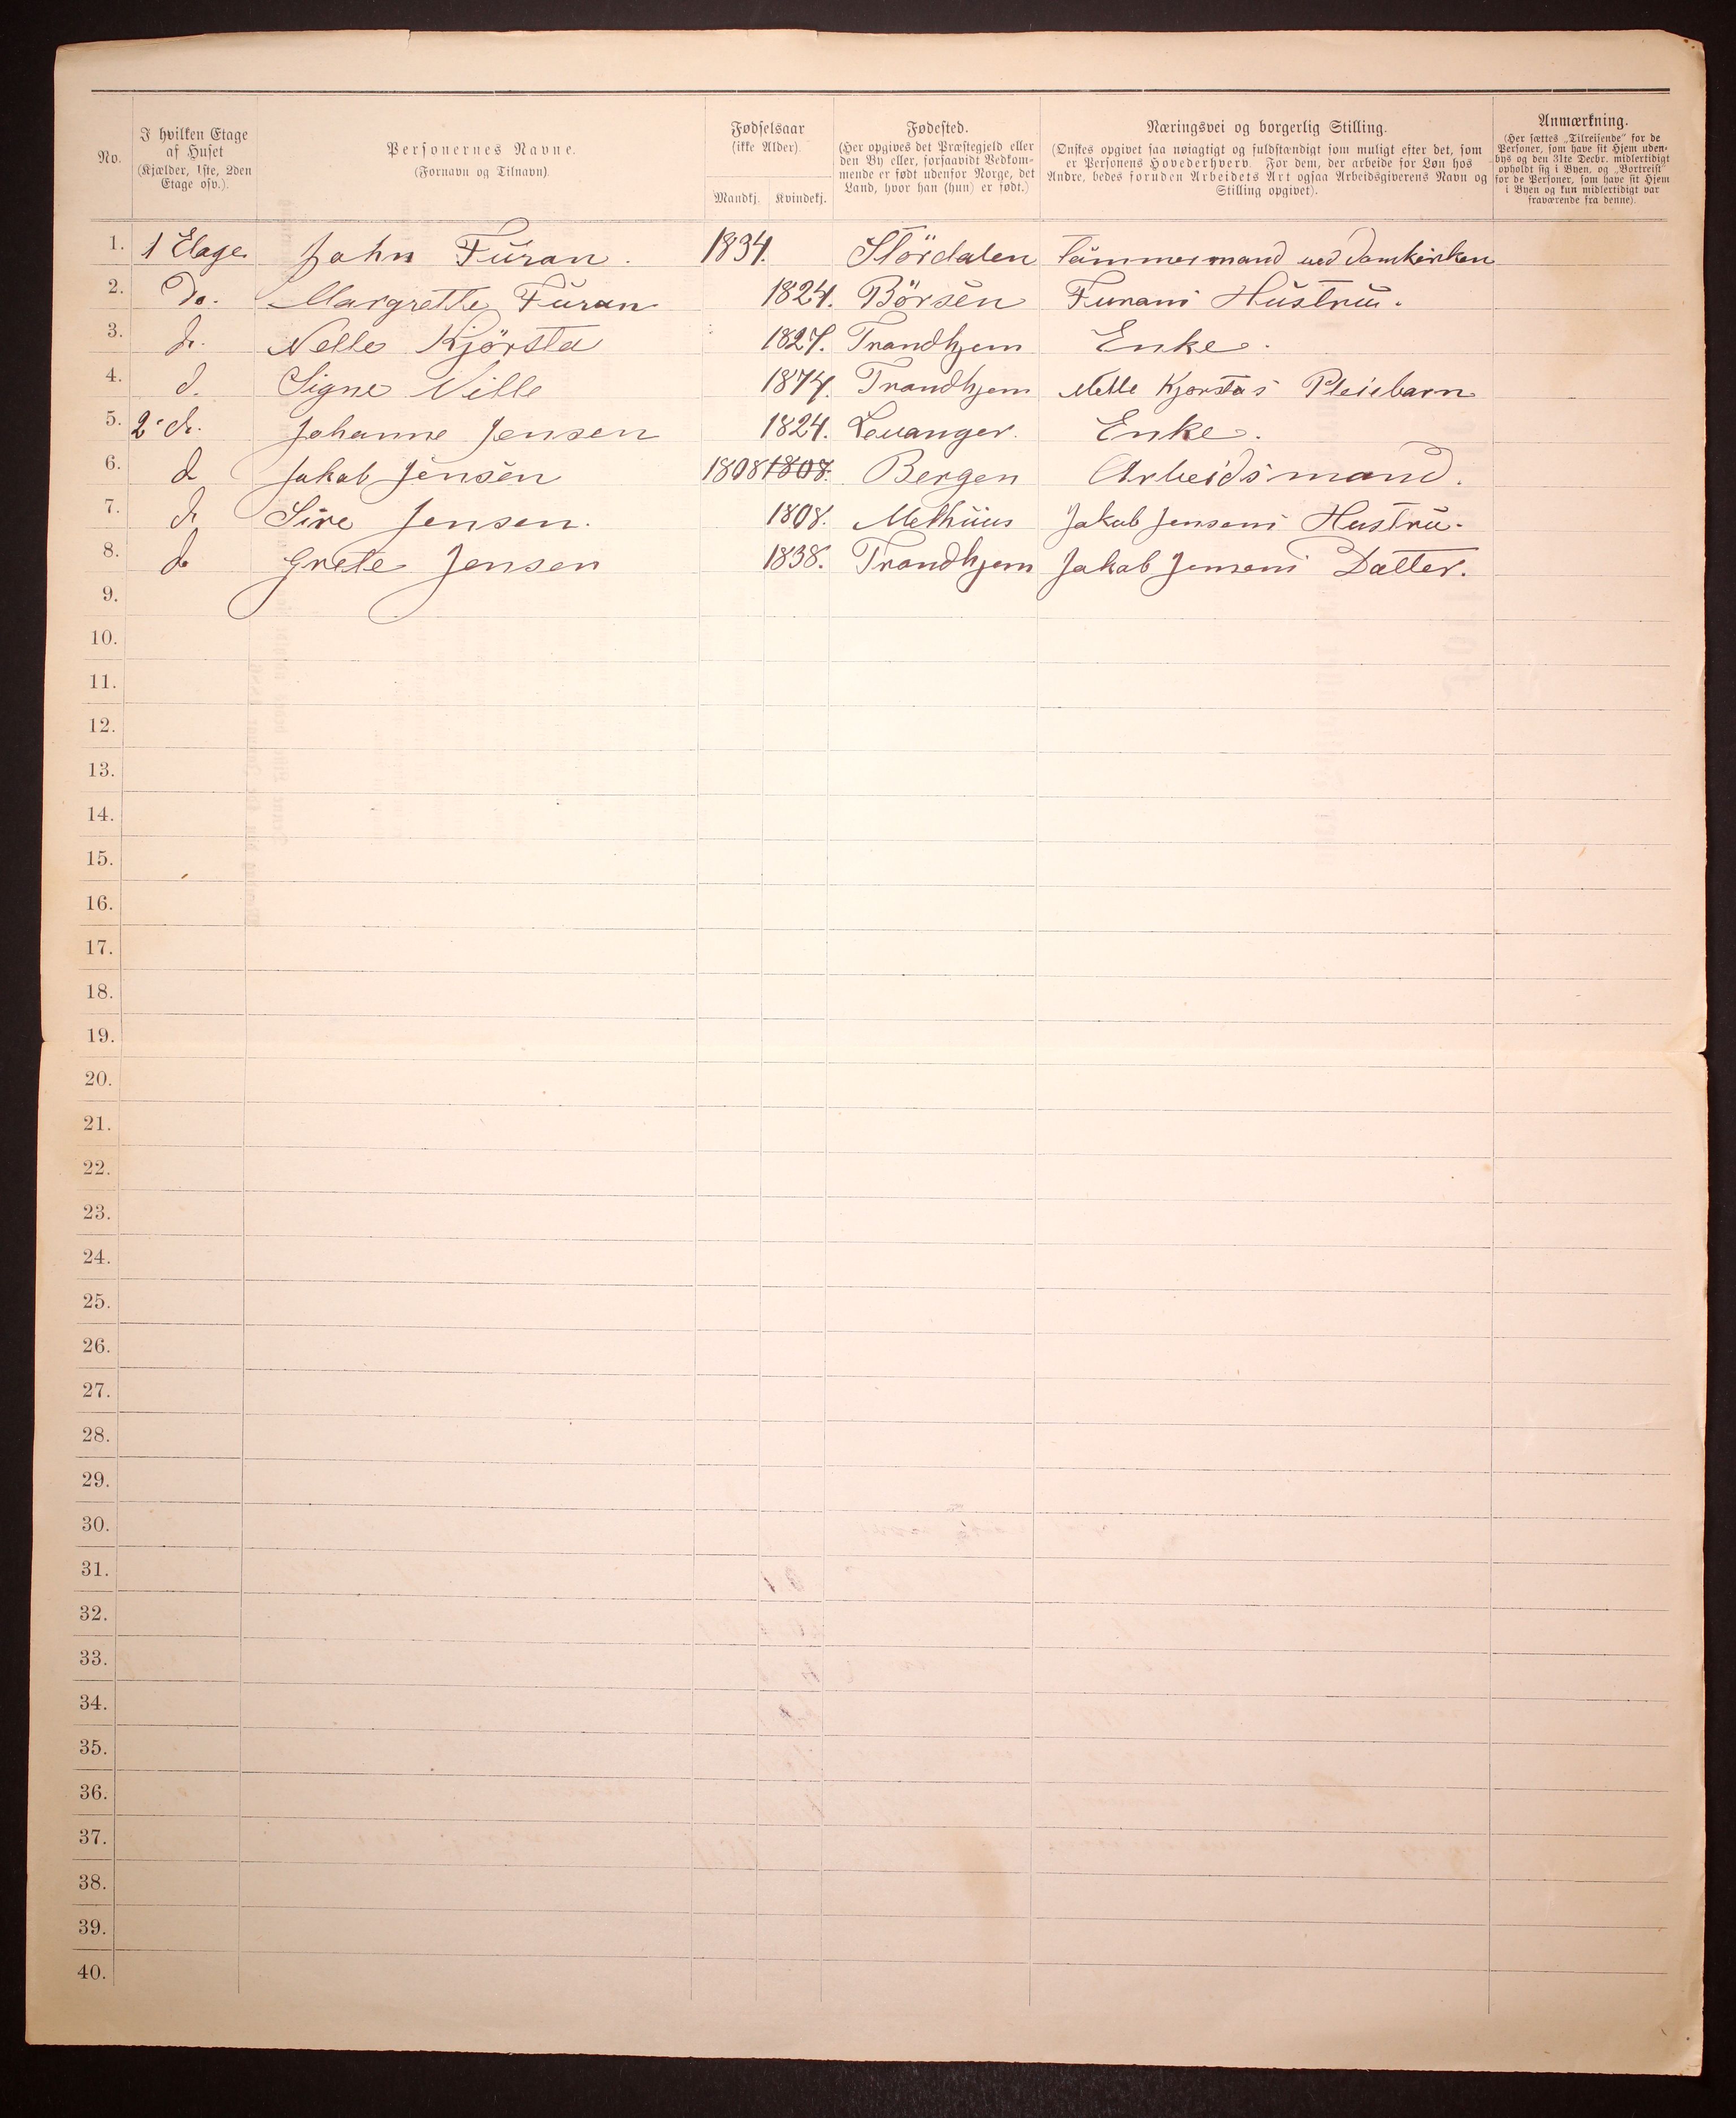 No.
I hvilken Etage
af Huset
(Kjælder, 1ste, 2den
Etage osv.).
Personernes Navne.
(Fornavn og Tilnavn).
Fødselsaar
(ikke Alder).
Mandkj. Kvindekj.
Fødested.
(Her opgives det Præstegjeld eller
den By eller, forsaavidt Vedkom-
mende er født udenfor Norge, det
Land, hvor han (hun) er født.)
Næringsvei og borgerlig Stilling.
(Ønskes opgivet saa nøiagtigt og fuldstændigt som muligt efter det, som
er Personens Hovederhverv. For dem, der arbeide for Løn hos
Andre, bedes foruden Arbeidets Art ogsaa Arbeidsgiverens Navn og
Stilling opgivet).
Anmærkning.
(Her sættes „Tilreisende" for de
Personer, som have sit Hjem uden-
bys og den 31te Decbr. midlertidigt
opholdt sig i Byen, og „Bortreist"
for de Personer, som have sit Hjem
i Byen og kun midlertidigt var
fraværende fra denne).
1. 1 Etage John Furan. 1834. Stördalen Tömmermand ved Domkirken
2. Do. Margrethe Furan 1824. Börsen Furans Hustru.
3. do. Nelle Kjörsta 1827. Trondhjem Enke.
4. d. Signe Nille 1874. Trondhjem Nelle Kjorstas Pleiebarn
5. 2. do. Johanne Jensen 1824. Levanger. Enke.
6. do Jakob Jensen 1808 1808. Bergen Arbeidsmand.
7. do Sire Jensen. 1808. Melhuus Jakob Jensens Hustru.
8. do Grete Jensen 1838. Trondhjem Jakob Jensens Datter.
9.
10.
11.
12.
13.
14.
15.
16.
17.
18.
19.
20.
21.
22.
23.
24.
25.
26.
27.
28.
29.
30.
31.
32.
33.
34.
35.
36.
37.
38.
39.
40.